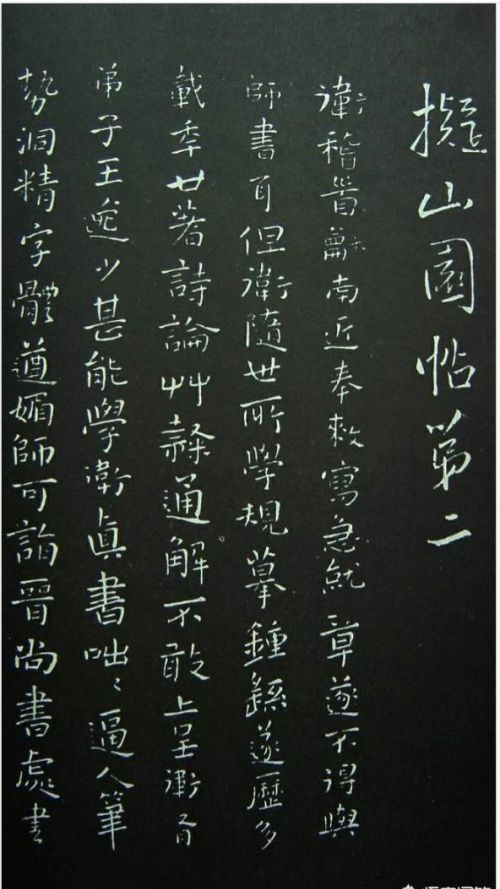 擬山園帖第二
衛稽首龢南近奉敕寫急就章遂不得與
師書耳但衛隨世所學規摹鍾繇遂歷多
載年廿著詩論艸隸通解不敢上呈衛有
弟子王逸少甚能學衛真書咄咄逼人筆
勢洞精字體遒媚師可詣晉尚書處書